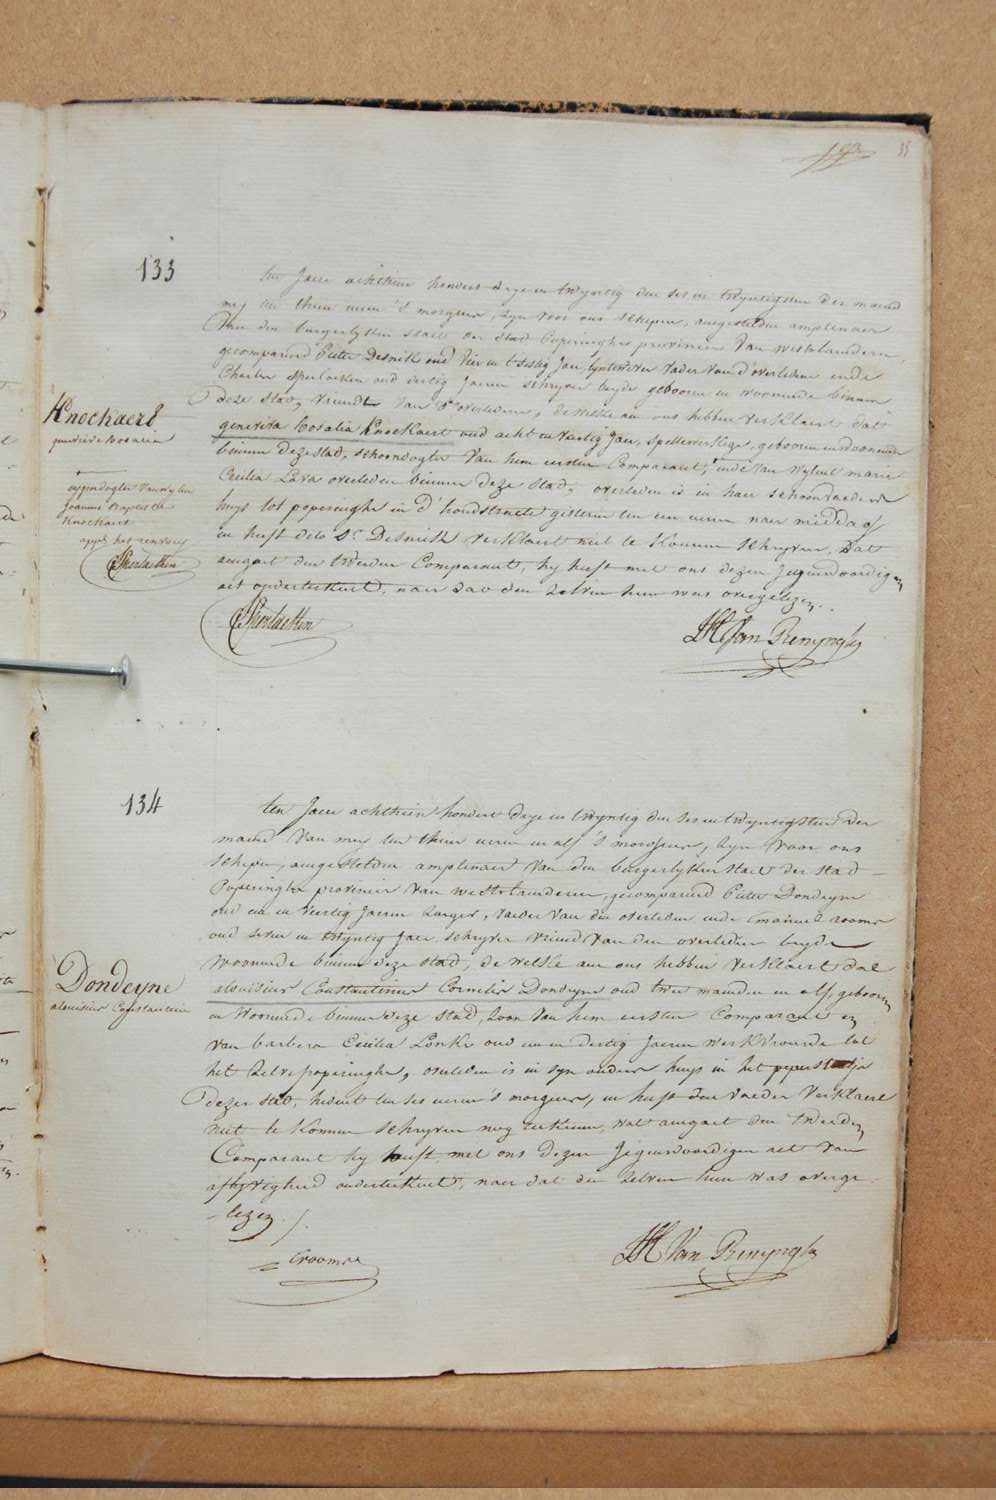 35
133
ten Jaere achthien hondert drye en twyntig den ses en twyntigsten der maend
mey ten thien ueren 's morgens, zyn voor ons schepen, aengestelden amptenaer
Van den burgerlyken staet der stad Poperinghe provincie van westvlaenderen,
gecompareerd Pieter Desmitt oud vier en tsestig Jaer, vader van d'overledene ende
Charles Sperlaeken oud dertig Jaeren schryver beyde gebooren en woonende binnen
deze stad, vriendt van d'overledene, dewelke aen ons hebben verklaert dat
genevieva Rosalia Knockaert oud acht en veertig Jaer, spellewerkige, gebooren en woonende
binnen deze stad, schoondogter van hem eersten Comparant, ende van wylent marie
Cecilia Lava overleden binnen deze stad, overleden is in haer schoonvaeders
huys tot poperinghe in d'hondstraete gisteren ten een uren naer middag
en heeft dito Sr. Desmitt verklaert niet te konnen schryven, Dat
aengaet den tweeden Comparant, hy heeft met ons dezen Jegenwoordigen
act onderteekent, naer dat den zelven hun was overgelezen.
Knockaert
genevieva Rosalia
eygendogter van wylen
Joannes Baptiste
Knockaert
appr. het renvoy
CSperlaeken
CSperlaeken
JH Van Renynghe
134
ten Jaere achthien hondert drye en twyntig den ses en twyntigsten der
maend Van mey ten thien ueren en alf 's morgens, zyn voor ons
schepen, aengestelden amptenaer van den burgerlyken staet der stad
Poperinghe provincie van westvlaenderen, gecompareerd Pieter Dondeyne
oud een en veertig Jaeren zaeger, vaeder van den overleden ende Emanuel roome
oud seven en twyntig Jaer, schryver vriend van den overleden beyde
woonende binnen deze stad, de welke aen ons hebben verklaert dat
aloisius Constantinus Cornelis Dondeyne oud twee maenden en alf, gebooren
en woonende binnen deze stad, zoon van hem eersten Comparant en
van barbera Cecilia Lonke oud een en dertig Jaeren werkvrouwe tot
het zelve poperinghe, overleden is in syn ouders huys in het peperstraetje
dezer stad, hedent ten ses ueren 's morgens, en heeft den vaeder verklaert
niet te konnen schryven nog teekenen, wat aengaet den tweeden
Comparant hy heeft met ons dezen Jegenwoordigen act van
aflyvigheid onderteekent, naer dat den zelven hun was overge-
-lezen.
Dondeyne
aloisius Constantin
Eroome
JH Van Renynghe